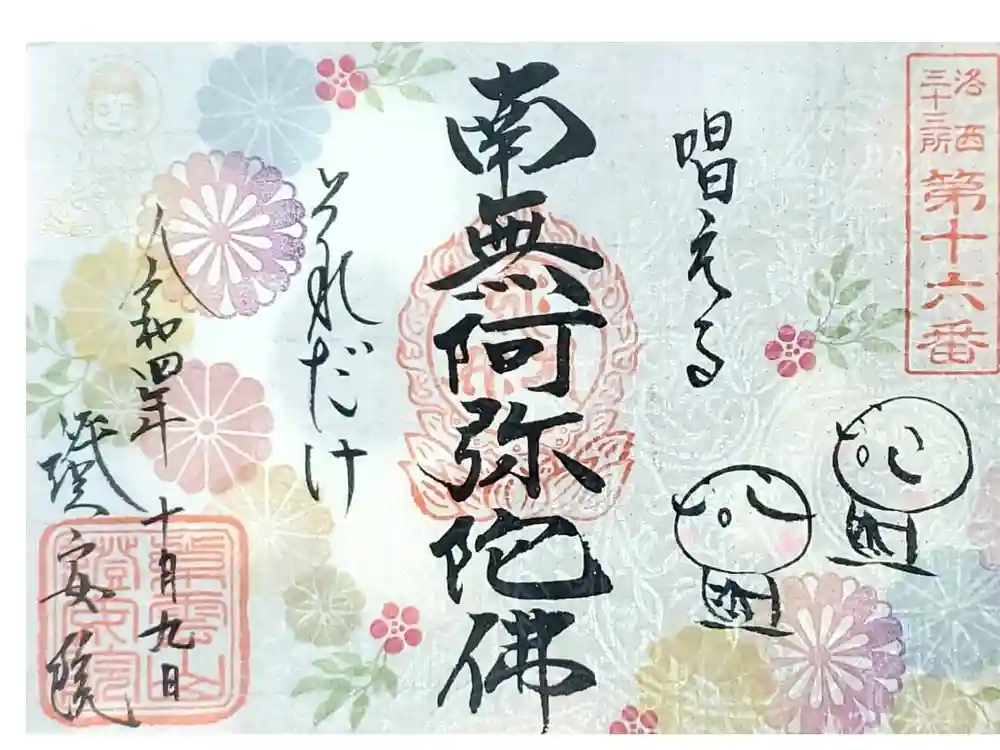 洛西
三十三所
第十六番
唱える
南無阿弥陀佛
それだけ
令和四年十月九日
安院